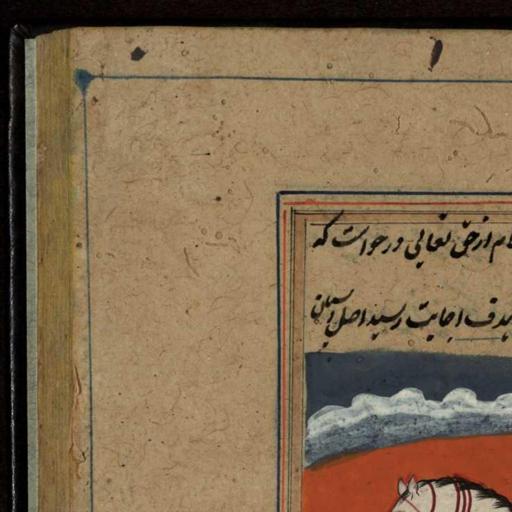 از حق تعالی درخواست که
هدف اجابت رسید اصل اسپان